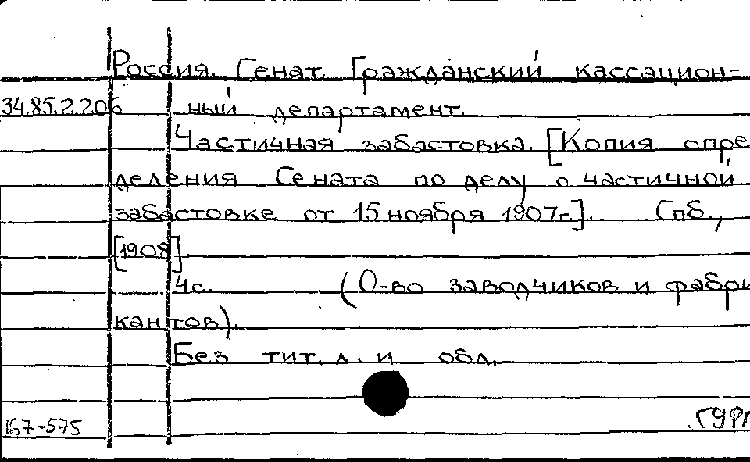 Россия. Сенат. Гражданский кассацион-
34.85.2.206 ный департамент.
Частичная забастовка. [Копия опре
деления Сената по делу о частичной
забастовке от 15 ноября 1907г.]. Спб.,
[1908]
4с. (О-во заводчиков и фабри
кантов).
Без тит. л. и обл.
167-575